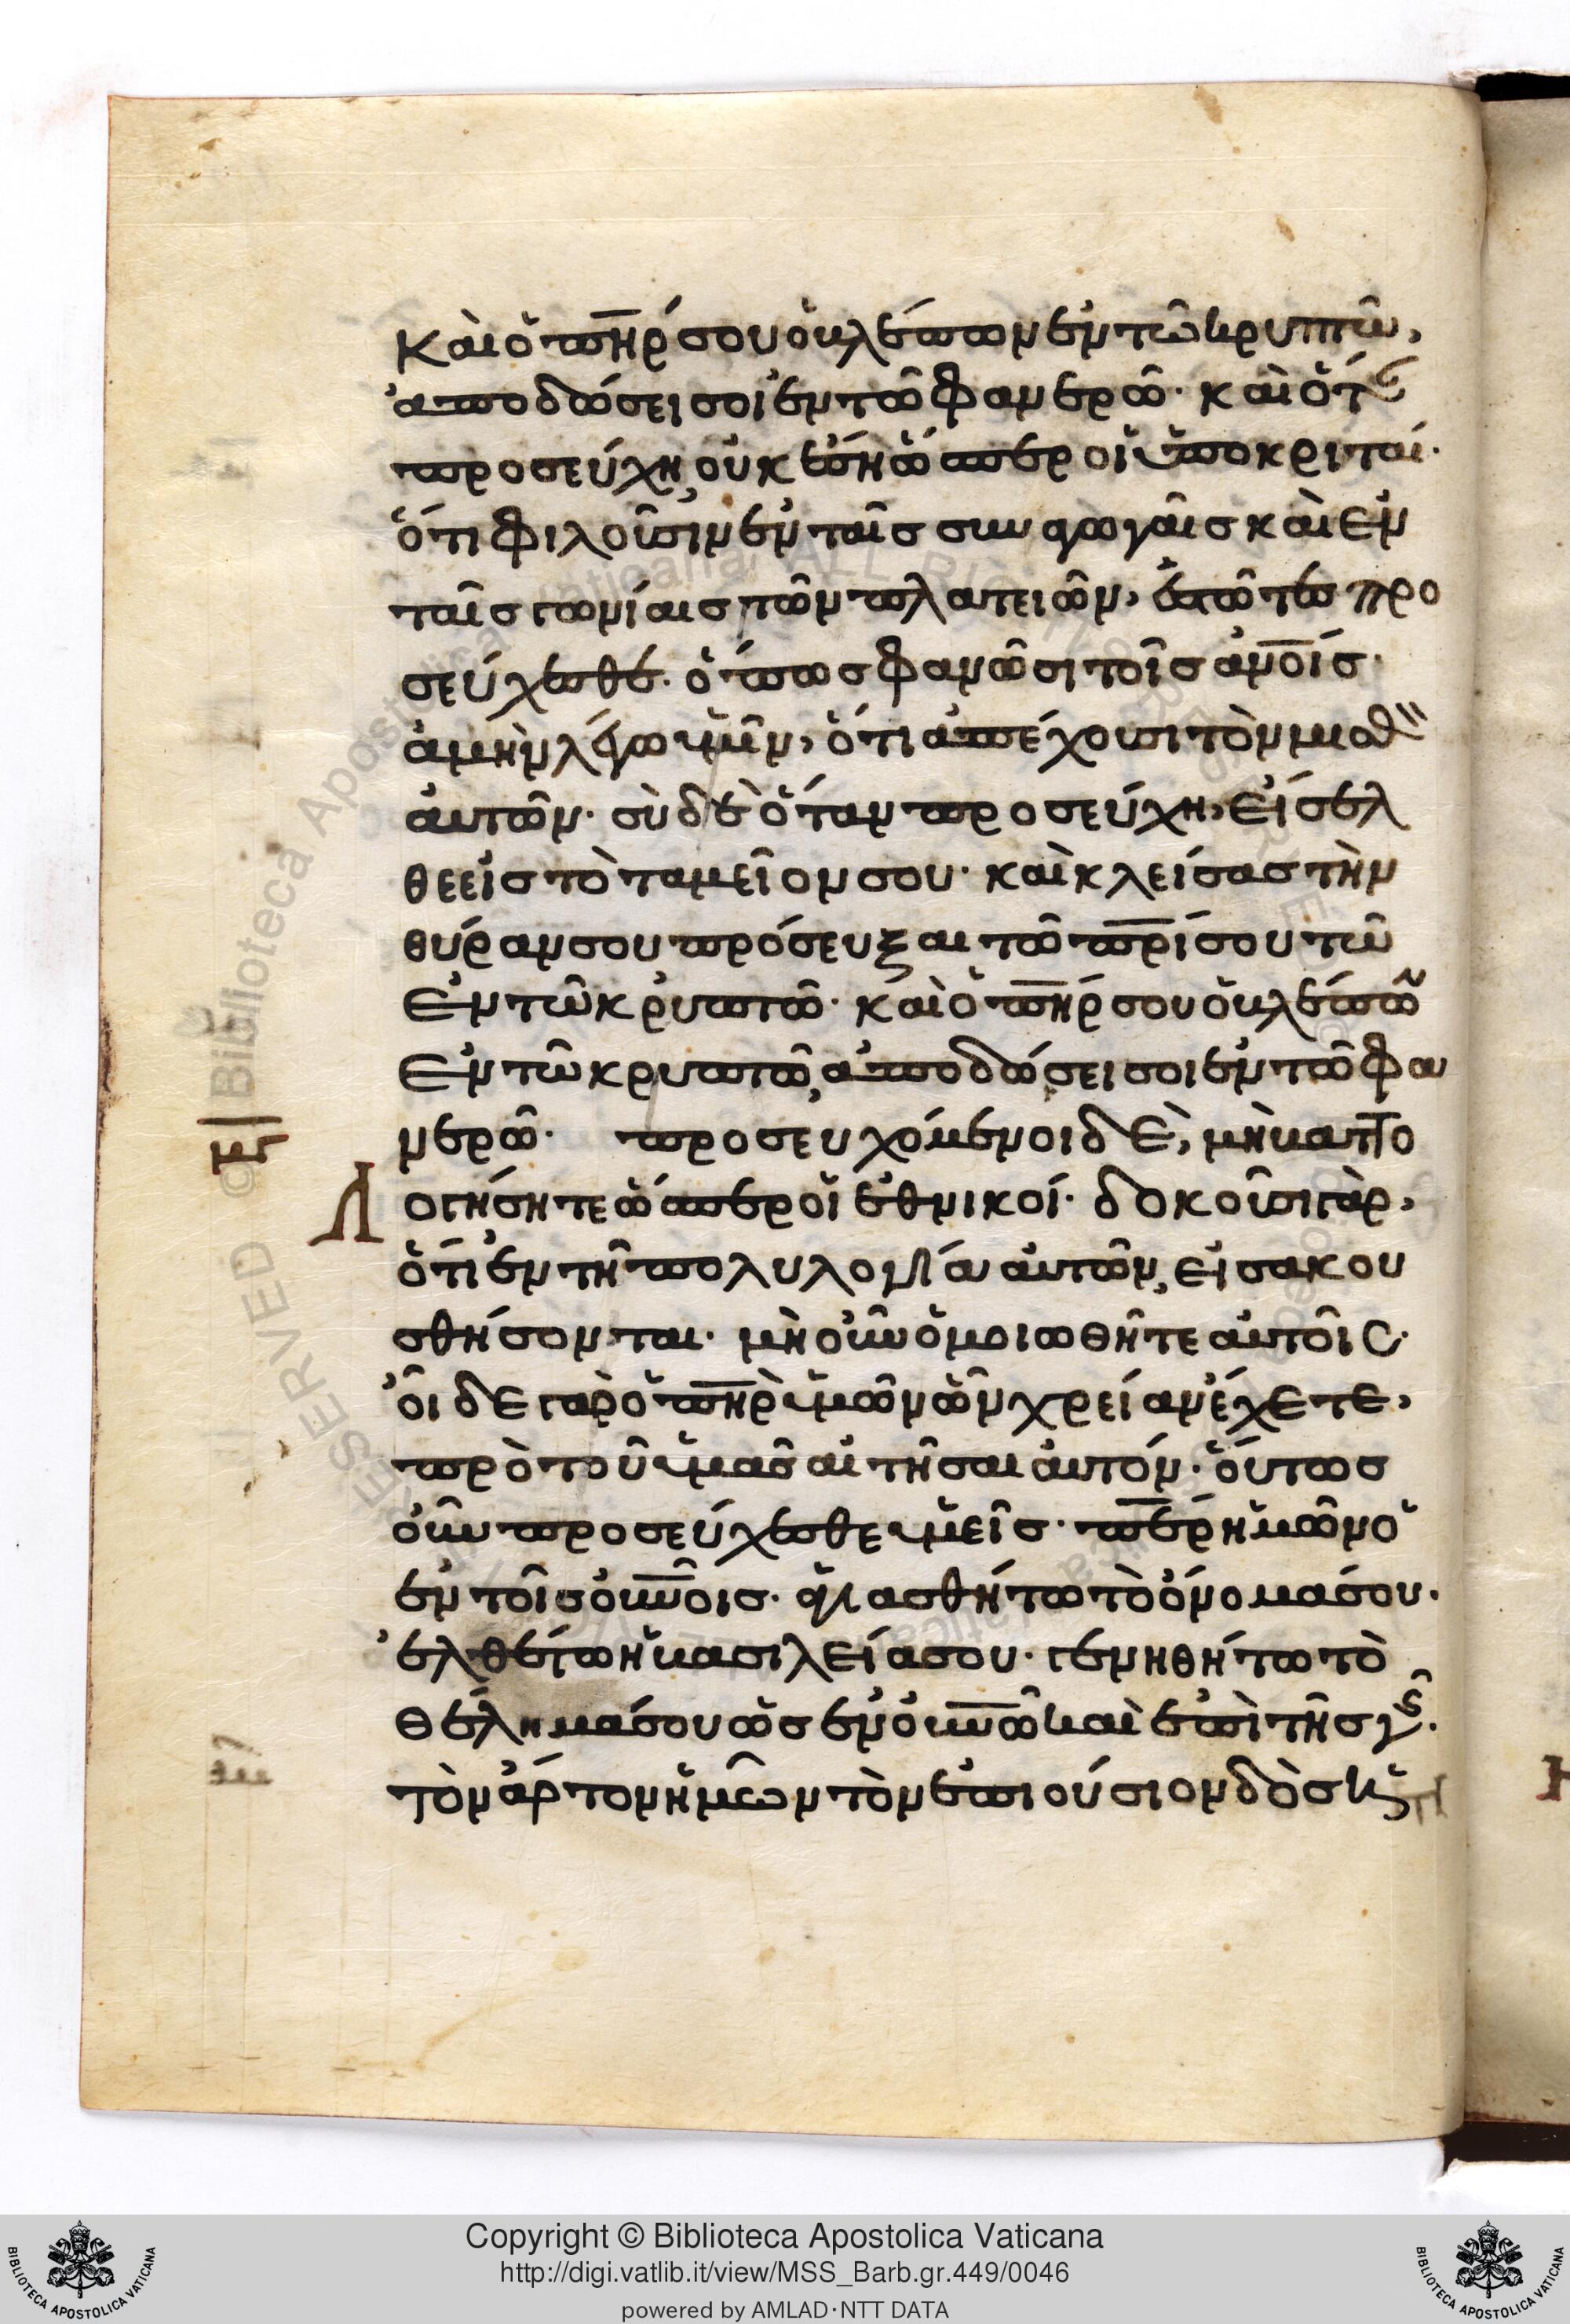 Καὶ ὁ πηρ σου ὁ βλέπων ἐν τῶ κρυπτῶ,
ἀποδώσει σοι ἐν τῶ φανερῶ· καὶ ὅτ
προσεύχη, οὐκ ἔση ὥσπερ οἱ ὑποκριταί·
ὅτι φιλοῦσιν ἐν ταῖς συναγωγαῖς καὶ ἐν
ταῖς γωνίαις τῶν πλατειῶν, ἑστῶτες προ
σεύχεσθέ· ὅπως φανῶσι τοῖς ἀνοις·
ἀμὴν λέγω ὑμῖν, ὅτι ἀπέχουσι τὸν μισθ
αὐτῶν· σὺ δὲ ὅταν προσεύχη, εἴσελ
θε εἰς τὸ ταμεῖον σου· καὶ κλείσας τὴν
θύραν σου πρόσευξαι τῶ πρι σου τῶ
ἐν τῶ κρυπτῶ· καὶ ὁ πηρ σου ὁ βλέπω
ἐν τῶ κρυπτῶ, ἀποδώσει σοι ἐν τῶ φα
νερῶ· προσευχόμενοι δὲ, μὴ βαττο
λογήσητε ὥσπερ οἱ ἐθνικοί· δοκοῦσι γὰρ,
ὅτι ἐν τῆ πολυλογία αὐτῶν, εἰσακου
σθήσονται· μὴ οὖν ὁμοιωθῆτε αὐτοῖς·
οἶδε γαρ ὁ πηρ ὑμῶν ὧν χρείαν ἔχετε,
πρὸ τοῦ ὑμᾶς αἰτῆσαι αὐτόν· οὕτως
οὖν προσεύχεσθε ὑμεῖς· περ ἡμῶν ὁ
ἐν τοῖς οὐνοις· ἁγιασθήτω τὸ ὄνομά σου·
ἐλθέτω ἡ βασιλεία σου· γενηθήτω τὸ
θέλημά σου ὡς ἐν οὐνω καὶ ἐπὶ τῆς γῆς·
τὸν ἄρτον ἡμῶν τὸν ἐπιούσιον δὸς
ϛ
Copyright © Biblioteca Apostolica Vaticana
http://digi.vatlib.it/view/MSS_Barb.gr.449/0046
powered by AMLAD·NTT DATA
BIBLIOTECA APOSTOLICA VATICANA
BIBLIOTECA APOSTOLICA VATICANA